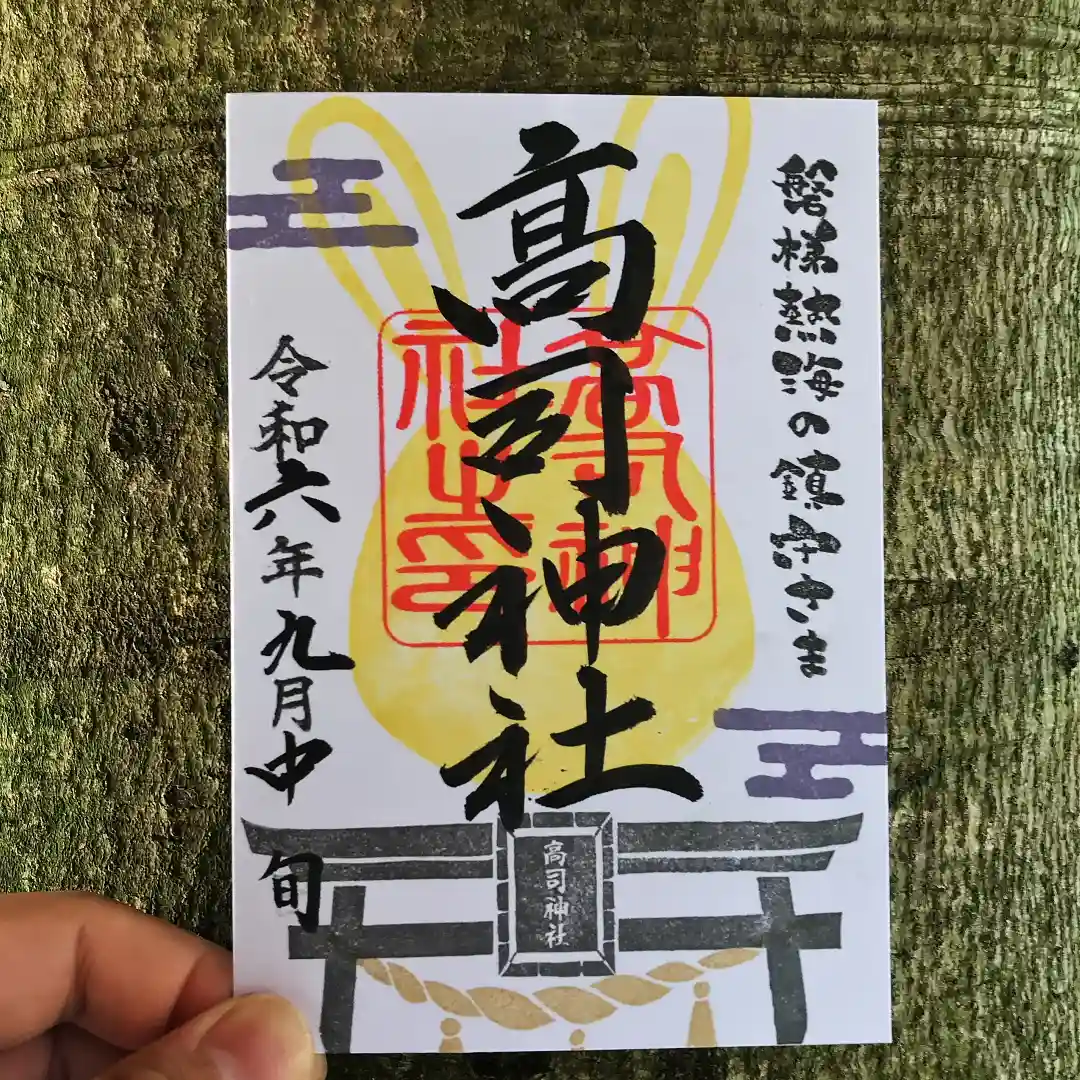 磐梯熱海の鎮守さま
高司神社
高司神社之印
令和六年九月中旬
高司神社